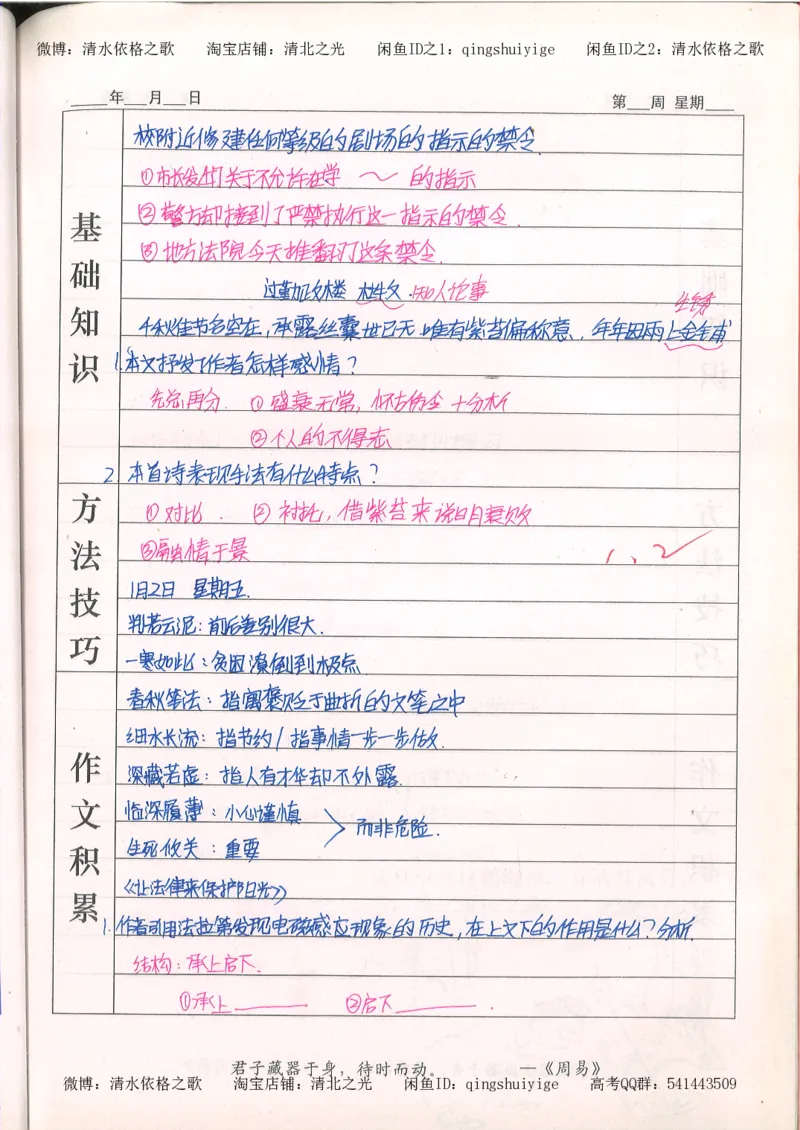 微博：清水依格之歌 淘宝店铺：清北之光 闲鱼ID之1：qingshuiyige 闲鱼ID之2：清水依格之歌
____年___月___日 第___周 星期____
基础知识
校附近修建任何等级的剧场的指示的禁令.
①市长发出关于不允许在学 ～ 的指示
②警方却接到了严禁执行这一指示的禁令.
③地方法院今天推翻了这条禁令.
过勤政楼 杜牧.知人论事
生锈
千秋佳节名空在，承露丝囊世已无 唯有紫苔偏称意，年年因雨上金铺
1.本文抒发了作者怎样感情？
先总再分. ①盛衰无常，怀古伤今 + 分析
②个人的不得志
2.本首诗表现手法有什么特点？
方法技巧
①对比. ②衬托，借紫苔来说明衰败
③融情于景
1、2
1月2日 星期五.
判若云泥：前后差别很大.
一寒如此：贫困潦倒到极点.
作文积累
春秋笔法：指寓褒贬于曲折的文笔之中
细水长流：指节约/指事情一步一步做.
深藏若虚：指人有才华却不外露.
临深履薄：小心谨慎
而非危险.
生死攸关：重要
《让法律来保护阳光》
1.作者引用法拉第发现电磁感应现象的历史，在上文下的作用是什么？分析.
结构：承上启下.
①承上________ ②启下________.
君子藏器于身，待时而动。 —《周易》
微博：清水依格之歌 淘宝店铺：清北之光 闲鱼ID：qingshuiyige 高考QQ群：541443509